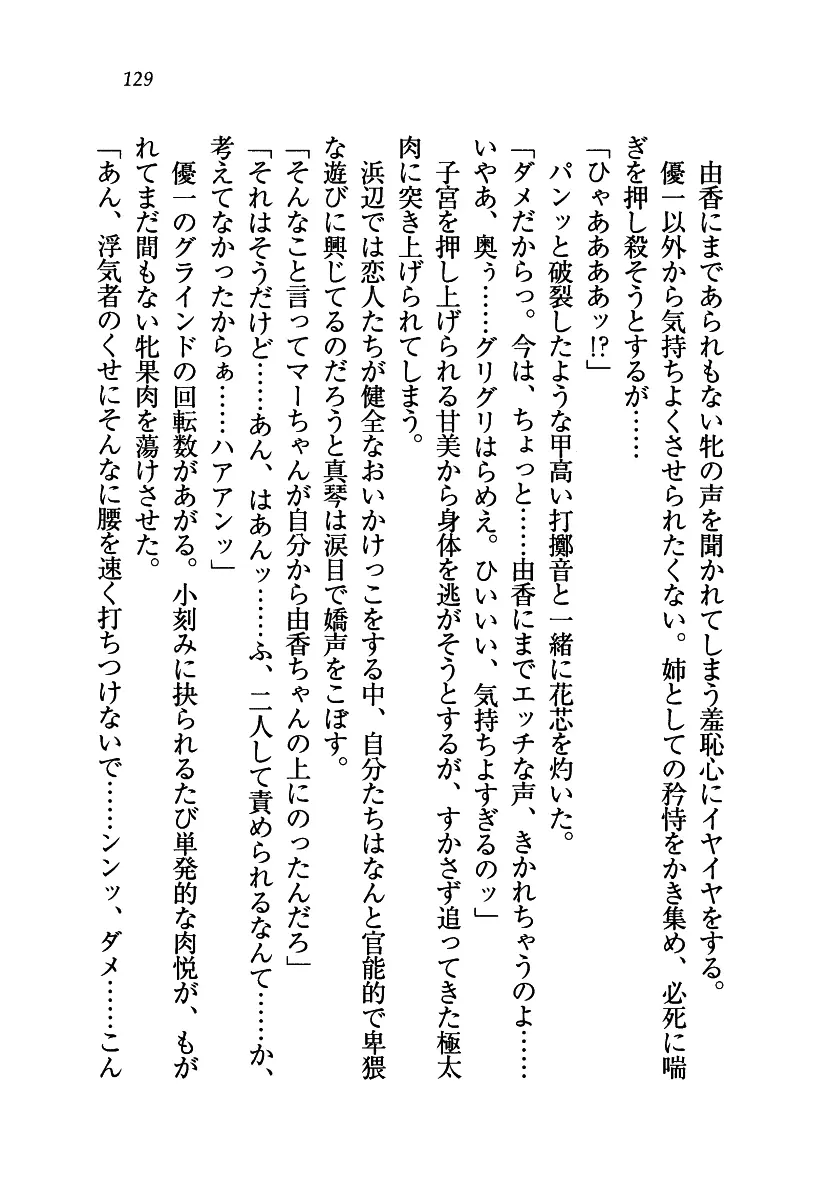 129
由香にまであられもない牝の声を聞かれてしまう羞恥心にイヤイヤをする。
優一以外から気持ちよくさせられたくない。姉としての矜恃をかき集め、必死に喘
ぎを押し殺そうとするが……
「ひゃああああッ!?」
パンッと破裂したような甲高い打擲音と一緒に花芯を灼いた。
「ダメだからっ。今は、ちょっと……由香にまでエッチな声、きかれちゃうのよ……
いやあ、奥ぅ……グリグリはらめえ。ひいいい、気持ちよすぎるのッ」
子宮を押し上げられる甘美から身体を逃がそうとするが、すかさず追ってきた極太
肉に突き上げられてしまう。
浜辺では恋人たちが健全なおいかけっこをする中、自分たちはなんと官能的で卑猥
な遊びに興じてるのだろうと真琴は涙目で嬌声をこぼす。
「そんなこと言ってマーちゃんが自分から由香ちゃんの上にのったんだろ」
「それはそうだけど……あん、はあんッ……ふ、二人して責められるなんて……か、
考えてなかったからぁ……ハアアンッ」
優一のグラインドの回転数があがる。小刻みに抉られるたび単発的な肉悦が、もが
れてまだ間もない牝果肉を蕩けさせた。
「あん、浮気者のくせにそんなに腰を速く打ちつけないで……ンンッ、ダメ……こん